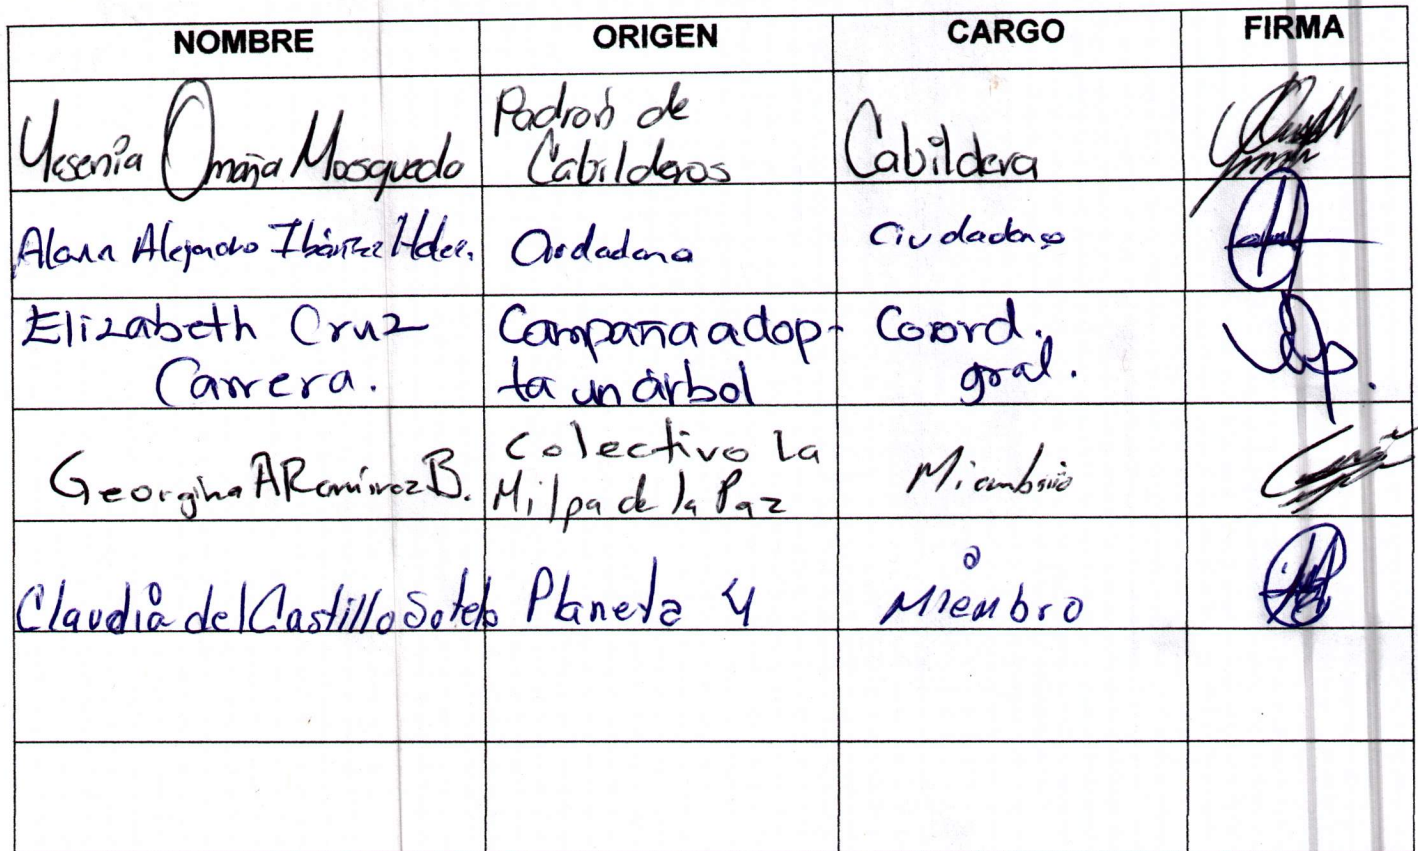 NOMBRE ORIGEN CARGO FIRMA
Yesenia Omaña Mosqueda Padrón de Cabildera
Cabilderos
Alann Alejandro Ibáñez Hdez. Ciudadana Ciudadano
Elizabeth Cruz Campaña adop- Coord.
Carrera. ta un árbol gral.
Georgina A Ramírez B. Colectivo La Miembro
Milpa de la Paz
Claudia del Castillo Sotelo Planeta 4 Miembro